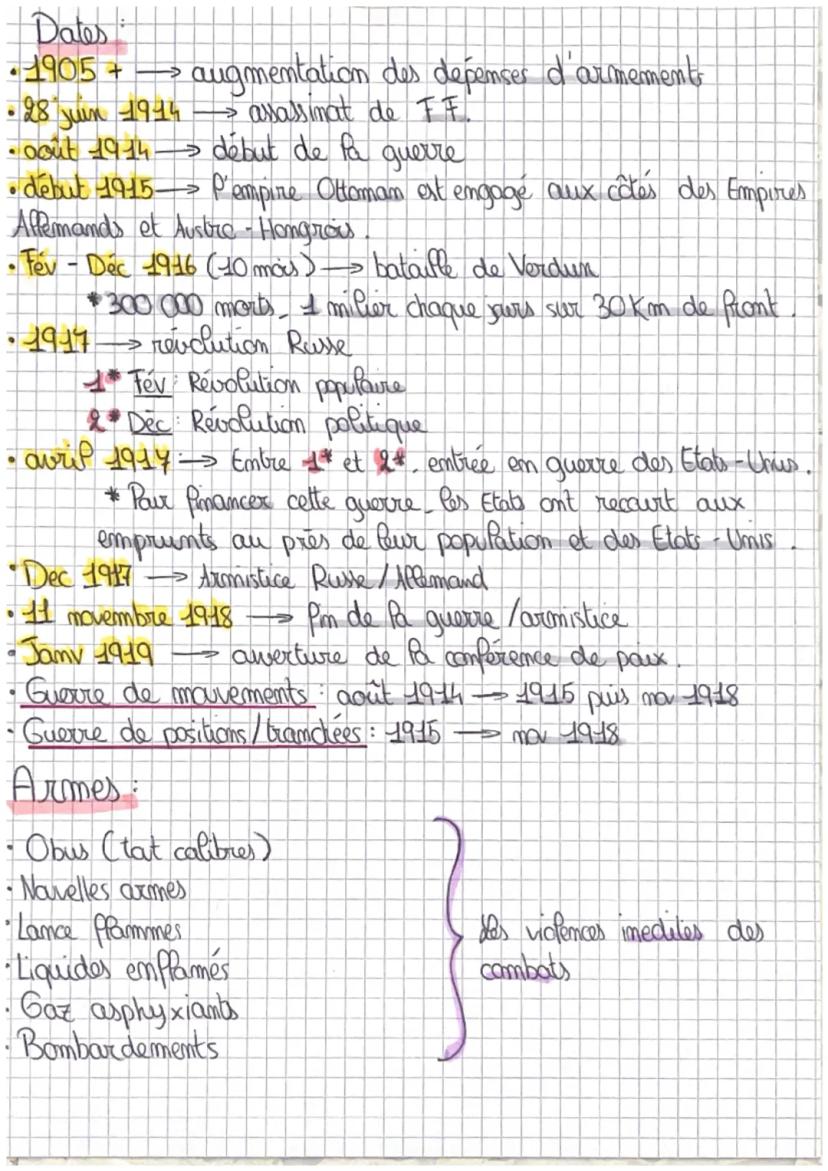 Dates :
• 1905 + → augmentation des dépenses d'armements
• 28 juin 1914 → assassinat de FF.
• août 1914 → début de la guerre
• début 1915 → l'empire Ottoman est engagé aux côtés des Empires
Allemands et Austro-Hongrois.
• Fév - Déc 1916 (10 mois) → bataille de Verdun
* 300 000 morts, 1 milier chaque jours sur 30 Km de front.
• 1917 → révolution Russe
1* Fév : Révolution populaire
2* Déc : Révolution politique
• avril 1917 → Entre 1* et 2*, entrée en guerre des Etats-Unis.
* Pour financer cette guerre, les Etats ont recourt aux
emprunts au près de leur population et des Etats-Unis.
• Dec 1917 → Armistice Russe/Allemand
• 11 novembre 1918 → fin de la guerre /armistice
• Janv 1919 → ouverture de la conférence de paix.
• Guerre de mouvements : août 1914 → 1915 puis nov 1918
• Guerre de positions/tranchées : 1915 → nov 1918
Armes :
• Obus (tat calibres)
• Nouvelles armes
• Lance flammes
• Liquides enflamés
• Gaz asphyxiants
• Bombardements
les violences inedites des
combats